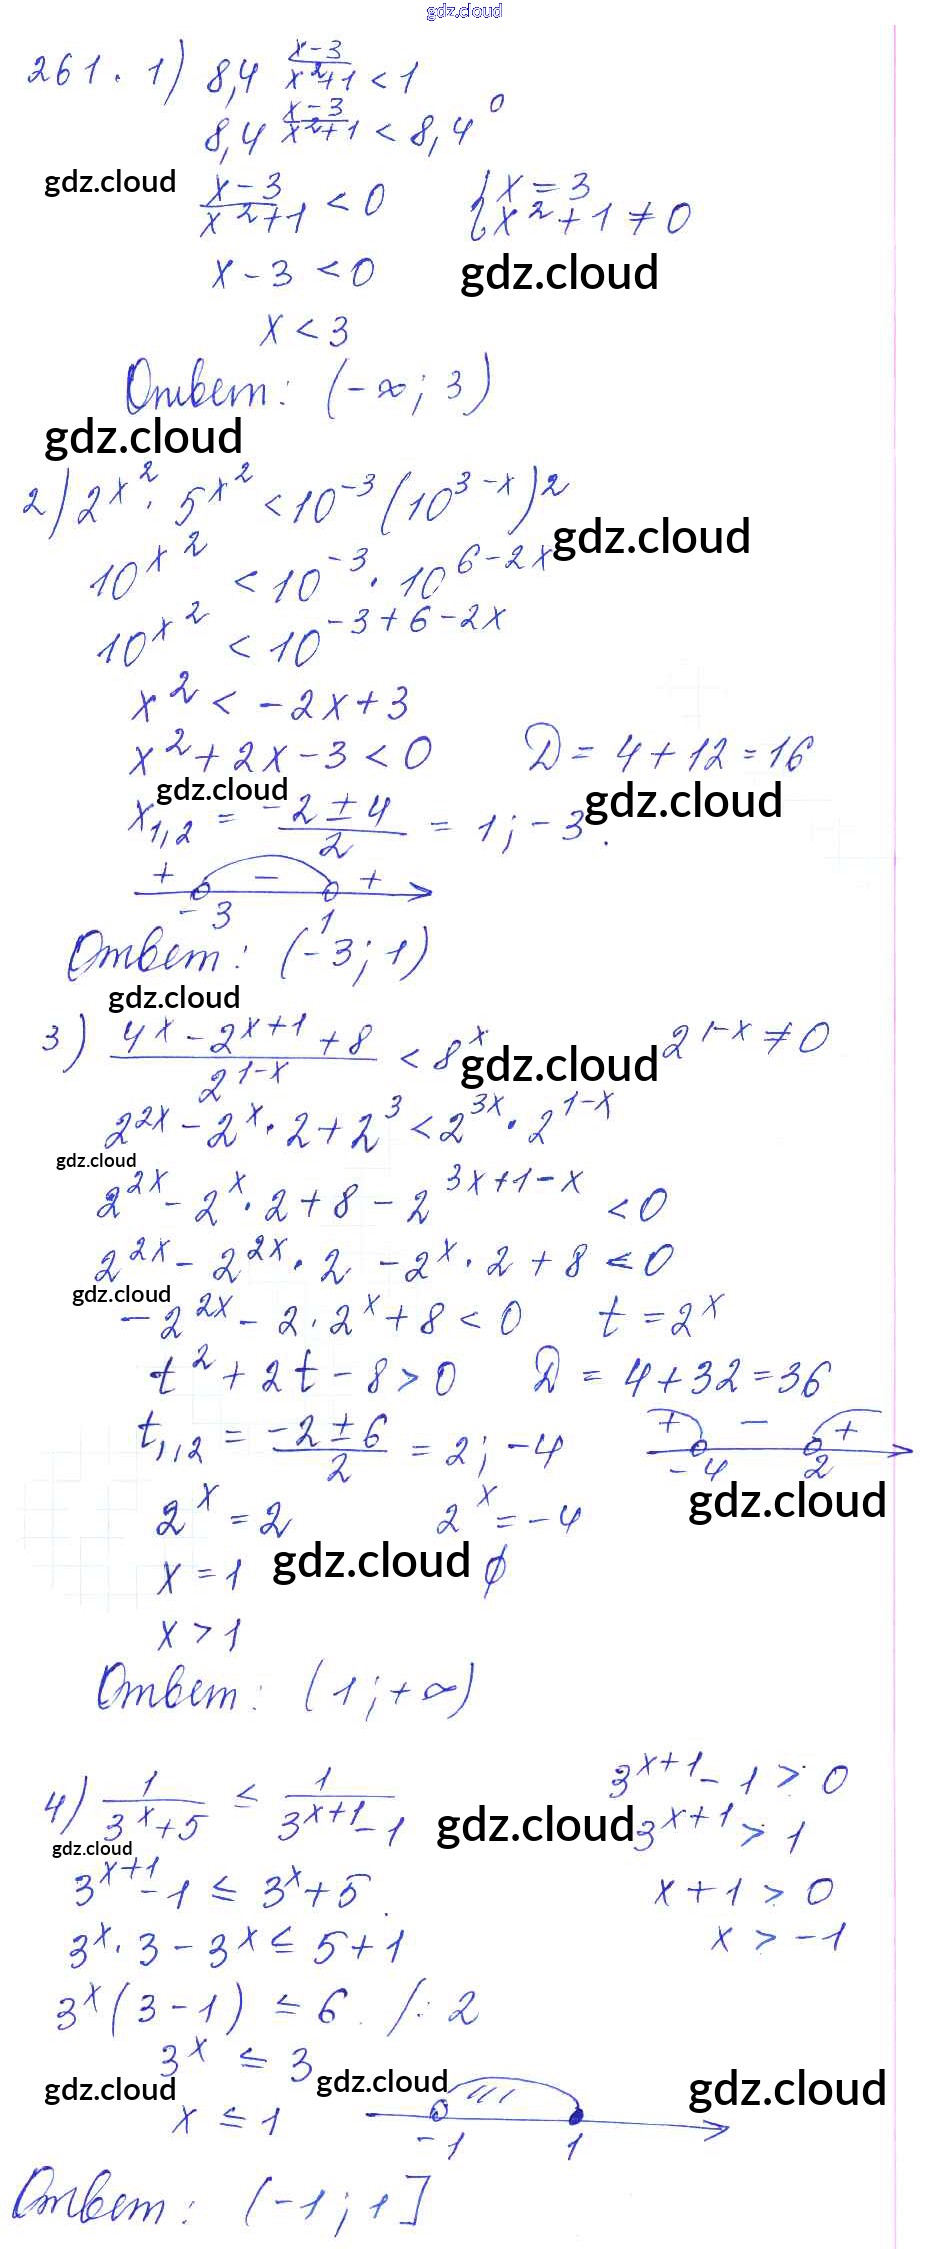 gdz.cloud
261. 1) 8,4^((x-3)/(x²+1)) < 1
8,4^((x-3)/(x²+1)) < 8,4⁰
gdz.cloud
(x-3)/(x²+1) < 0 { x = 3
x²+1 ≠ 0
x - 3 < 0 gdz.cloud
x < 3
Ответ: (-∞; 3)
gdz.cloud
2) 2^(x²) · 5^(x²) < 10^(-3) (10^(3-x))²
gdz.cloud
10^(x²) < 10^(-3) · 10^(6-2x)
10^(x²) < 10^(-3+6-2x)
x² < -2x + 3
x² + 2x - 3 < 0 D = 4 + 12 = 16
gdz.cloud gdz.cloud
x₁,₂ = (-2 ± 4)/2 = 1; -3.
+ - +
-3 1
Ответ: (-3; 1)
gdz.cloud
3) (4^x - 2^(x+1) + 8)/(2^(1-x)) < 8^x 2^(1-x) ≠ 0
gdz.cloud
2^(2x) - 2^x · 2 + 2³ < 2^(3x) · 2^(1-x)
gdz.cloud
2^(2x) - 2^x · 2 + 8 - 2^(3x+1-x) < 0
2^(2x) - 2^(2x) · 2 - 2^x · 2 + 8 < 0
gdz.cloud
-2^(2x) - 2 · 2^x + 8 < 0 t = 2^x
t² + 2t - 8 > 0 D = 4 + 32 = 36
t₁,₂ = (-2 ± 6)/2 = 2; -4 + - +
-4 2
gdz.cloud
2^x = 2 2^x = -4
x = 1 gdz.cloud ∅
x > 1
Ответ: (1; +∞)
4) 1/(3^x + 5) ≤ 1/(3^(x+1) - 1) 3^(x+1) - 1 > 0
gdz.cloud 3^(x+1) > 1
gdz.cloud
3^(x+1) - 1 ≤ 3^x + 5 x + 1 > 0
3^x · 3 - 3^x ≤ 5 + 1 x > -1
3^x (3 - 1) ≤ 6 /: 2
3^x ≤ 3
gdz.cloud gdz.cloud gdz.cloud
x ≤ 1 -1 1
Ответ: (-1; 1]